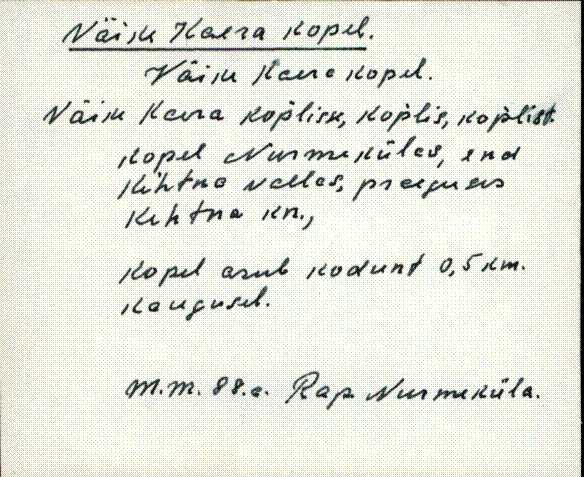 Väike Kaera kopel.
Väike Kaera kopel.
Väike Kaera koplisse, koplis, koplist.
kopel Nurmekülas, end
Kehtna vallas, praeguses
Kehtna kn.,
kopel asub kodunt 0,5 km.
kaugusel.
M.M. 88.a. Rap Nurmeküla.